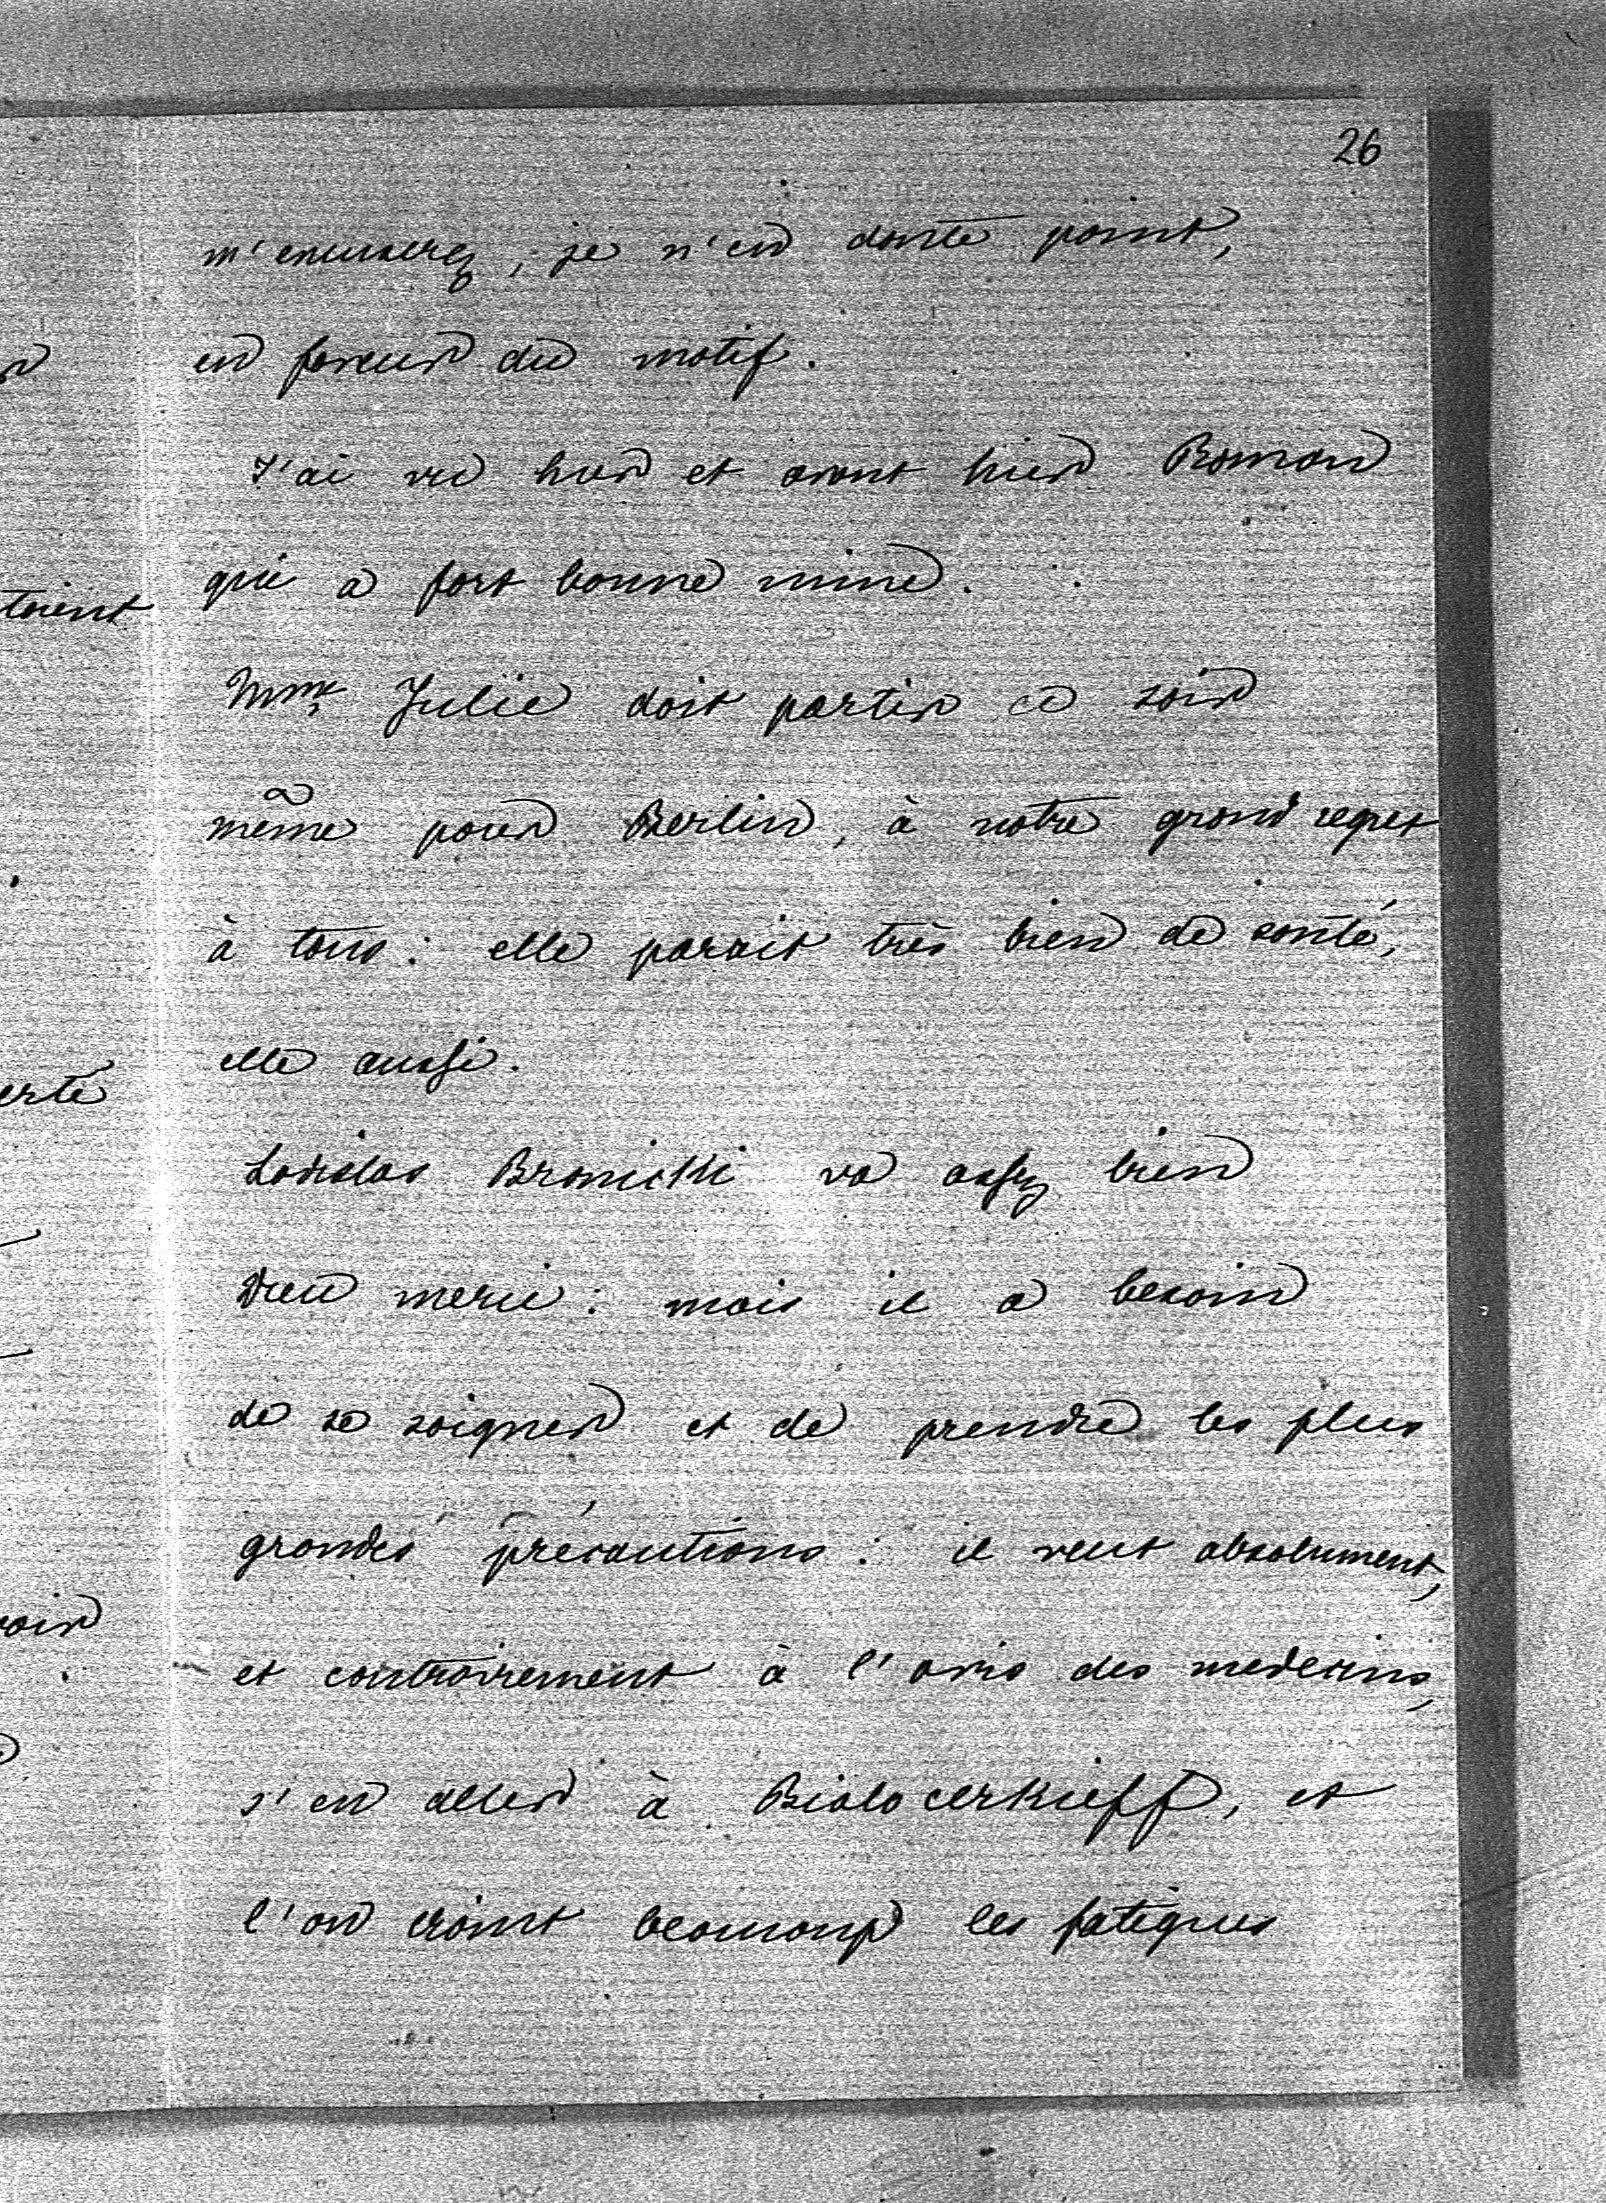 26
m'excuserez, je n'en doute point,
en faveur du motif.
J'ai vu hier et avant hier Roman
qui a fort bonne mine.
Mme Julie doit partir ce soir
même pour Berlin, à notre grand regret
à tous : elle parait très bien de santé,
elle aussi.
Ladislas Branicki va assez bien
Dieu merci : mais il a besoin
de se soigner et de prendre les plus
grandes précautions : il veut absolument,
et contrairement à l'avis des medecins,
s'en aller à Bialocerkieff, et
l'on craint beaucoup les fatigues